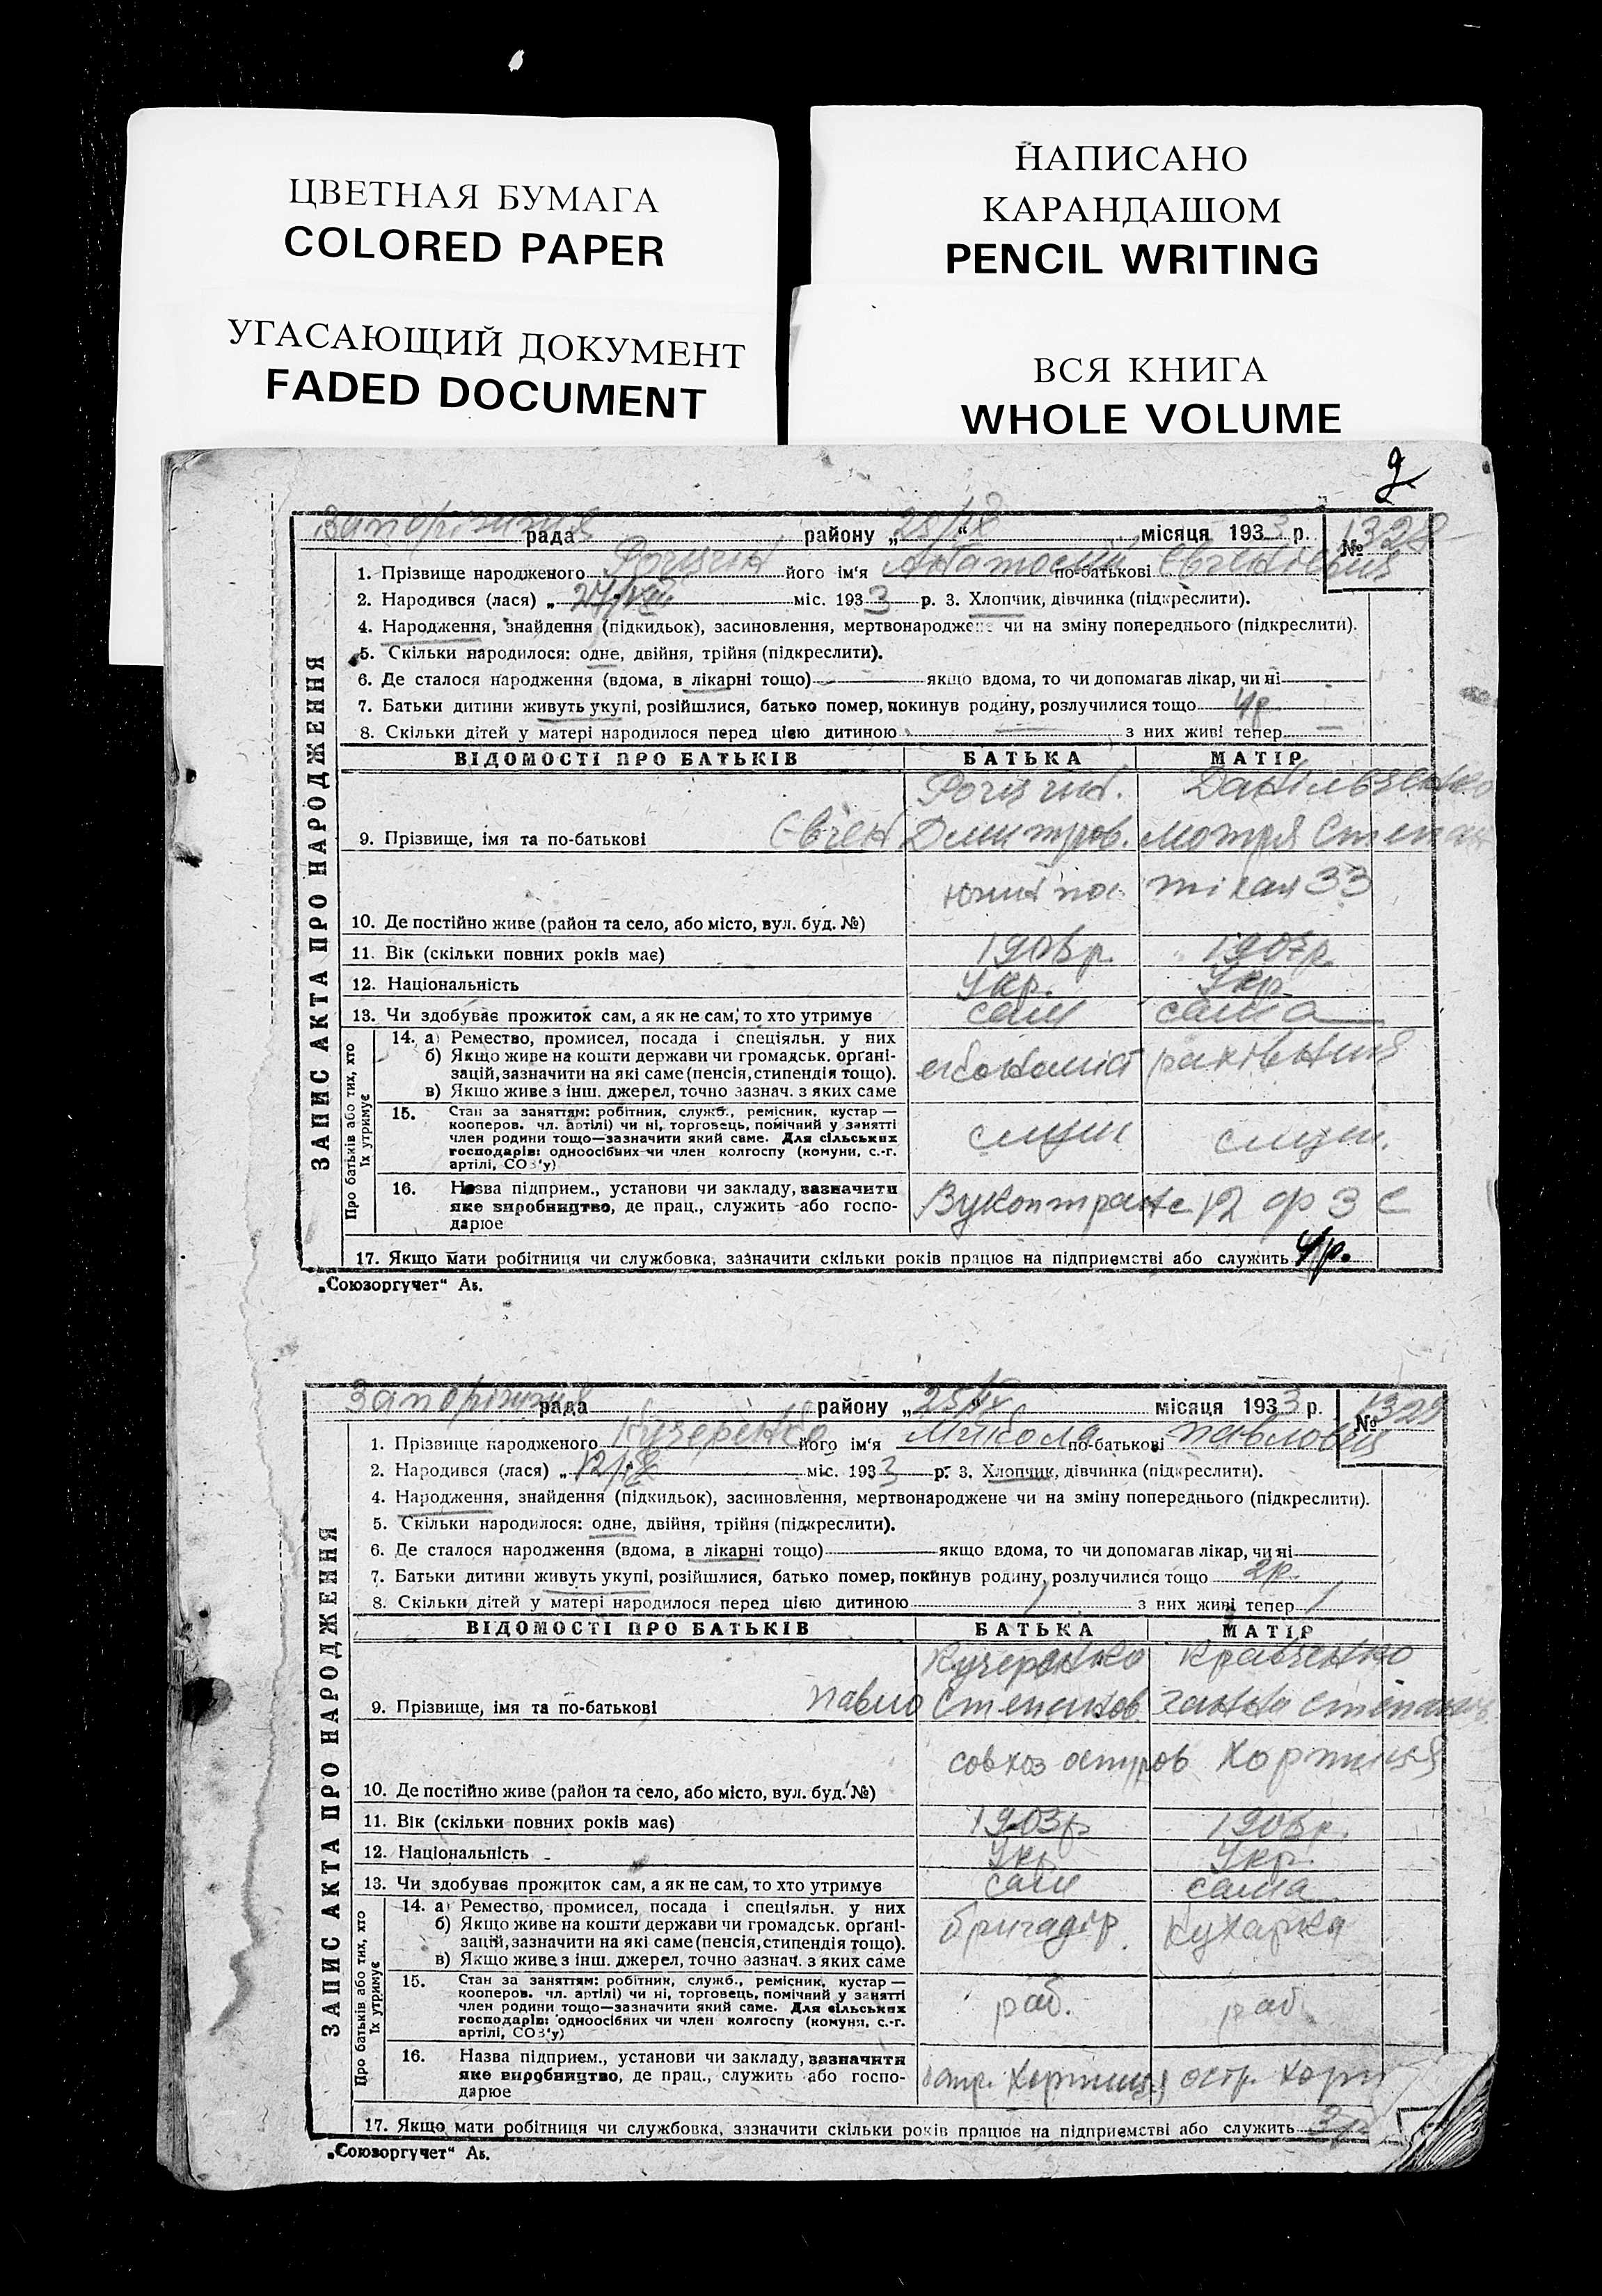 ЦВЕТНАЯ БУМАГА
COLORED PAPER
УГАСАЮЩИЙ ДОКУМЕНТ
FADED DOCUMENT
НАПИСАНО
КАРАНДАШОМ
PENCIL WRITING
ВСЯ КНИГА
WHOLE VOLUME
рада району „25/IX“ місяця 1933 р. № 1328
1. Прізвище народженого його ім'я по-батькові
2. Народився (лася) „27/VIII“ міс. 1933 р. 3. Хлопчик, дівчинка (підкреслити).
4. Народження, знайдення (підкидьок), засиновлення, мертвонароджене чи на зміну попереднього (підкреслити).
5. Скільки народилося: одне, двійня, трійня (підкреслити).
6. Де сталося народження (вдома, в лікарні тощо) якщо вдома, то чи допомагав лікар, чи ні
7. Батьки дитини живуть укупі, розійшлися, батько помер, покинув родину, розлучилися тощо 4р
8. Скільки дітей у матері народилося перед цією дитиною — з них живі тепер —
ЗАПИС АКТА ПРО НАРОДЖЕННЯ
ВІДОМОСТІ ПРО БАТЬКІВ БАТЬКА МАТІР
Данільченко
9. Прізвище, імя та по-батькові Євген Дмитров. Мотря Степан
33
10. Де постійно живе (район та село, або місто, вул. буд. №)
11. Вік (скільки повних років має)
12. Національність Укр. Укр.
13. Чи здобуває прожиток сам, а як не сам, то хто утримує сам сама
Про батьків або тих, хто їх утримує
14. а) Ремество, промисел, посада і спеціяльн. у них
б) Якщо живе на кошти держави чи громадськ. орґані-
зацій, зазначити на які саме (пенсія, стипендія тощо).
в) Якщо живе з інш. джерел, точно зазнач. з яких саме
економіст рахівниця
15. Стан за заняттям: робітник, служб., ремісник, кустар —
кооперов. чл. артілі) чи ні, торговець, помічний у занятті
член родини тощо—зазначити який саме. Для сільських
господарів: одноосібних чи член колгоспу (комуни, с.-г.
артілі, СОЗ'у)
служ служ.
16. Назва підприєм., установи чи закладу, зазначити
яке виробництво, де прац., служить або госпо-
дарює
17. Якщо мати робітниця чи службовка, зазначити скільки років працює на підприємстві або служить 4р.
„Союзоргучет“ Аь.
рада району „25/IX“ місяця 1933 р. № 1329
1. Прізвище народженого Кучеренко його ім'я Микола по-батькові Павлович
2. Народився (лася) „12/IX“ міс. 1933 р. 3. Хлопчик, дівчинка (підкреслити).
4. Народження, знайдення (підкидьок), засиновлення, мертвонароджене чи на зміну попереднього (підкреслити).
5. Скільки народилося: одне, двійня, трійня (підкреслити).
6. Де сталося народження (вдома, в лікарні тощо) якщо вдома, то чи допомагав лікар, чи ні
7. Батьки дитини живуть укупі, розійшлися, батько помер, покинув родину, розлучилися тощо 2р.
8. Скільки дітей у матері народилося перед цією дитиною 1 з них живі тепер 1
ЗАПИС АКТА ПРО НАРОДЖЕННЯ
ВІДОМОСТІ ПРО БАТЬКІВ БАТЬКА МАТІР
Кучеренко Кравченко
9. Прізвище, імя та по-батькові Павло Степанов Ганна Степанов.
совхоз остров Хортиця
10. Де постійно живе (район та село, або місто, вул. буд. №)
11. Вік (скільки повних років має) 1903р
12. Національність Укр. Укр.
13. Чи здобуває прожиток сам, а як не сам, то хто утримує сам сама
Про батьків або тих, хто їх утримує
14. а) Ремество, промисел, посада і спеціяльн. у них
б) Якщо живе на кошти держави чи громадськ. орґані-
зацій, зазначити на які саме (пенсія, стипендія тощо).
в) Якщо живе з інш. джерел, точно зазнач. з яких саме
бригадір кухарка
15. Стан за заняттям: робітник, служб., ремісник, кустар —
кооперов. чл. артілі) чи ні, торговець, помічний у занятті
член родини тощо—зазначити який саме. Для сільських
господарів: одноосібних чи член колгоспу (комуни, с.-г.
артілі, СОЗ'у)
раб. раб.
16. Назва підприєм., установи чи закладу, зазначити
яке виробництво, де прац., служить або госпо-
дарює
остр. Хортиця остр. Хорт
17. Якщо мати робітниця чи службовка, зазначити скільки років працює на підприємстві або служить 3р
„Союзоргучет“ Аь.